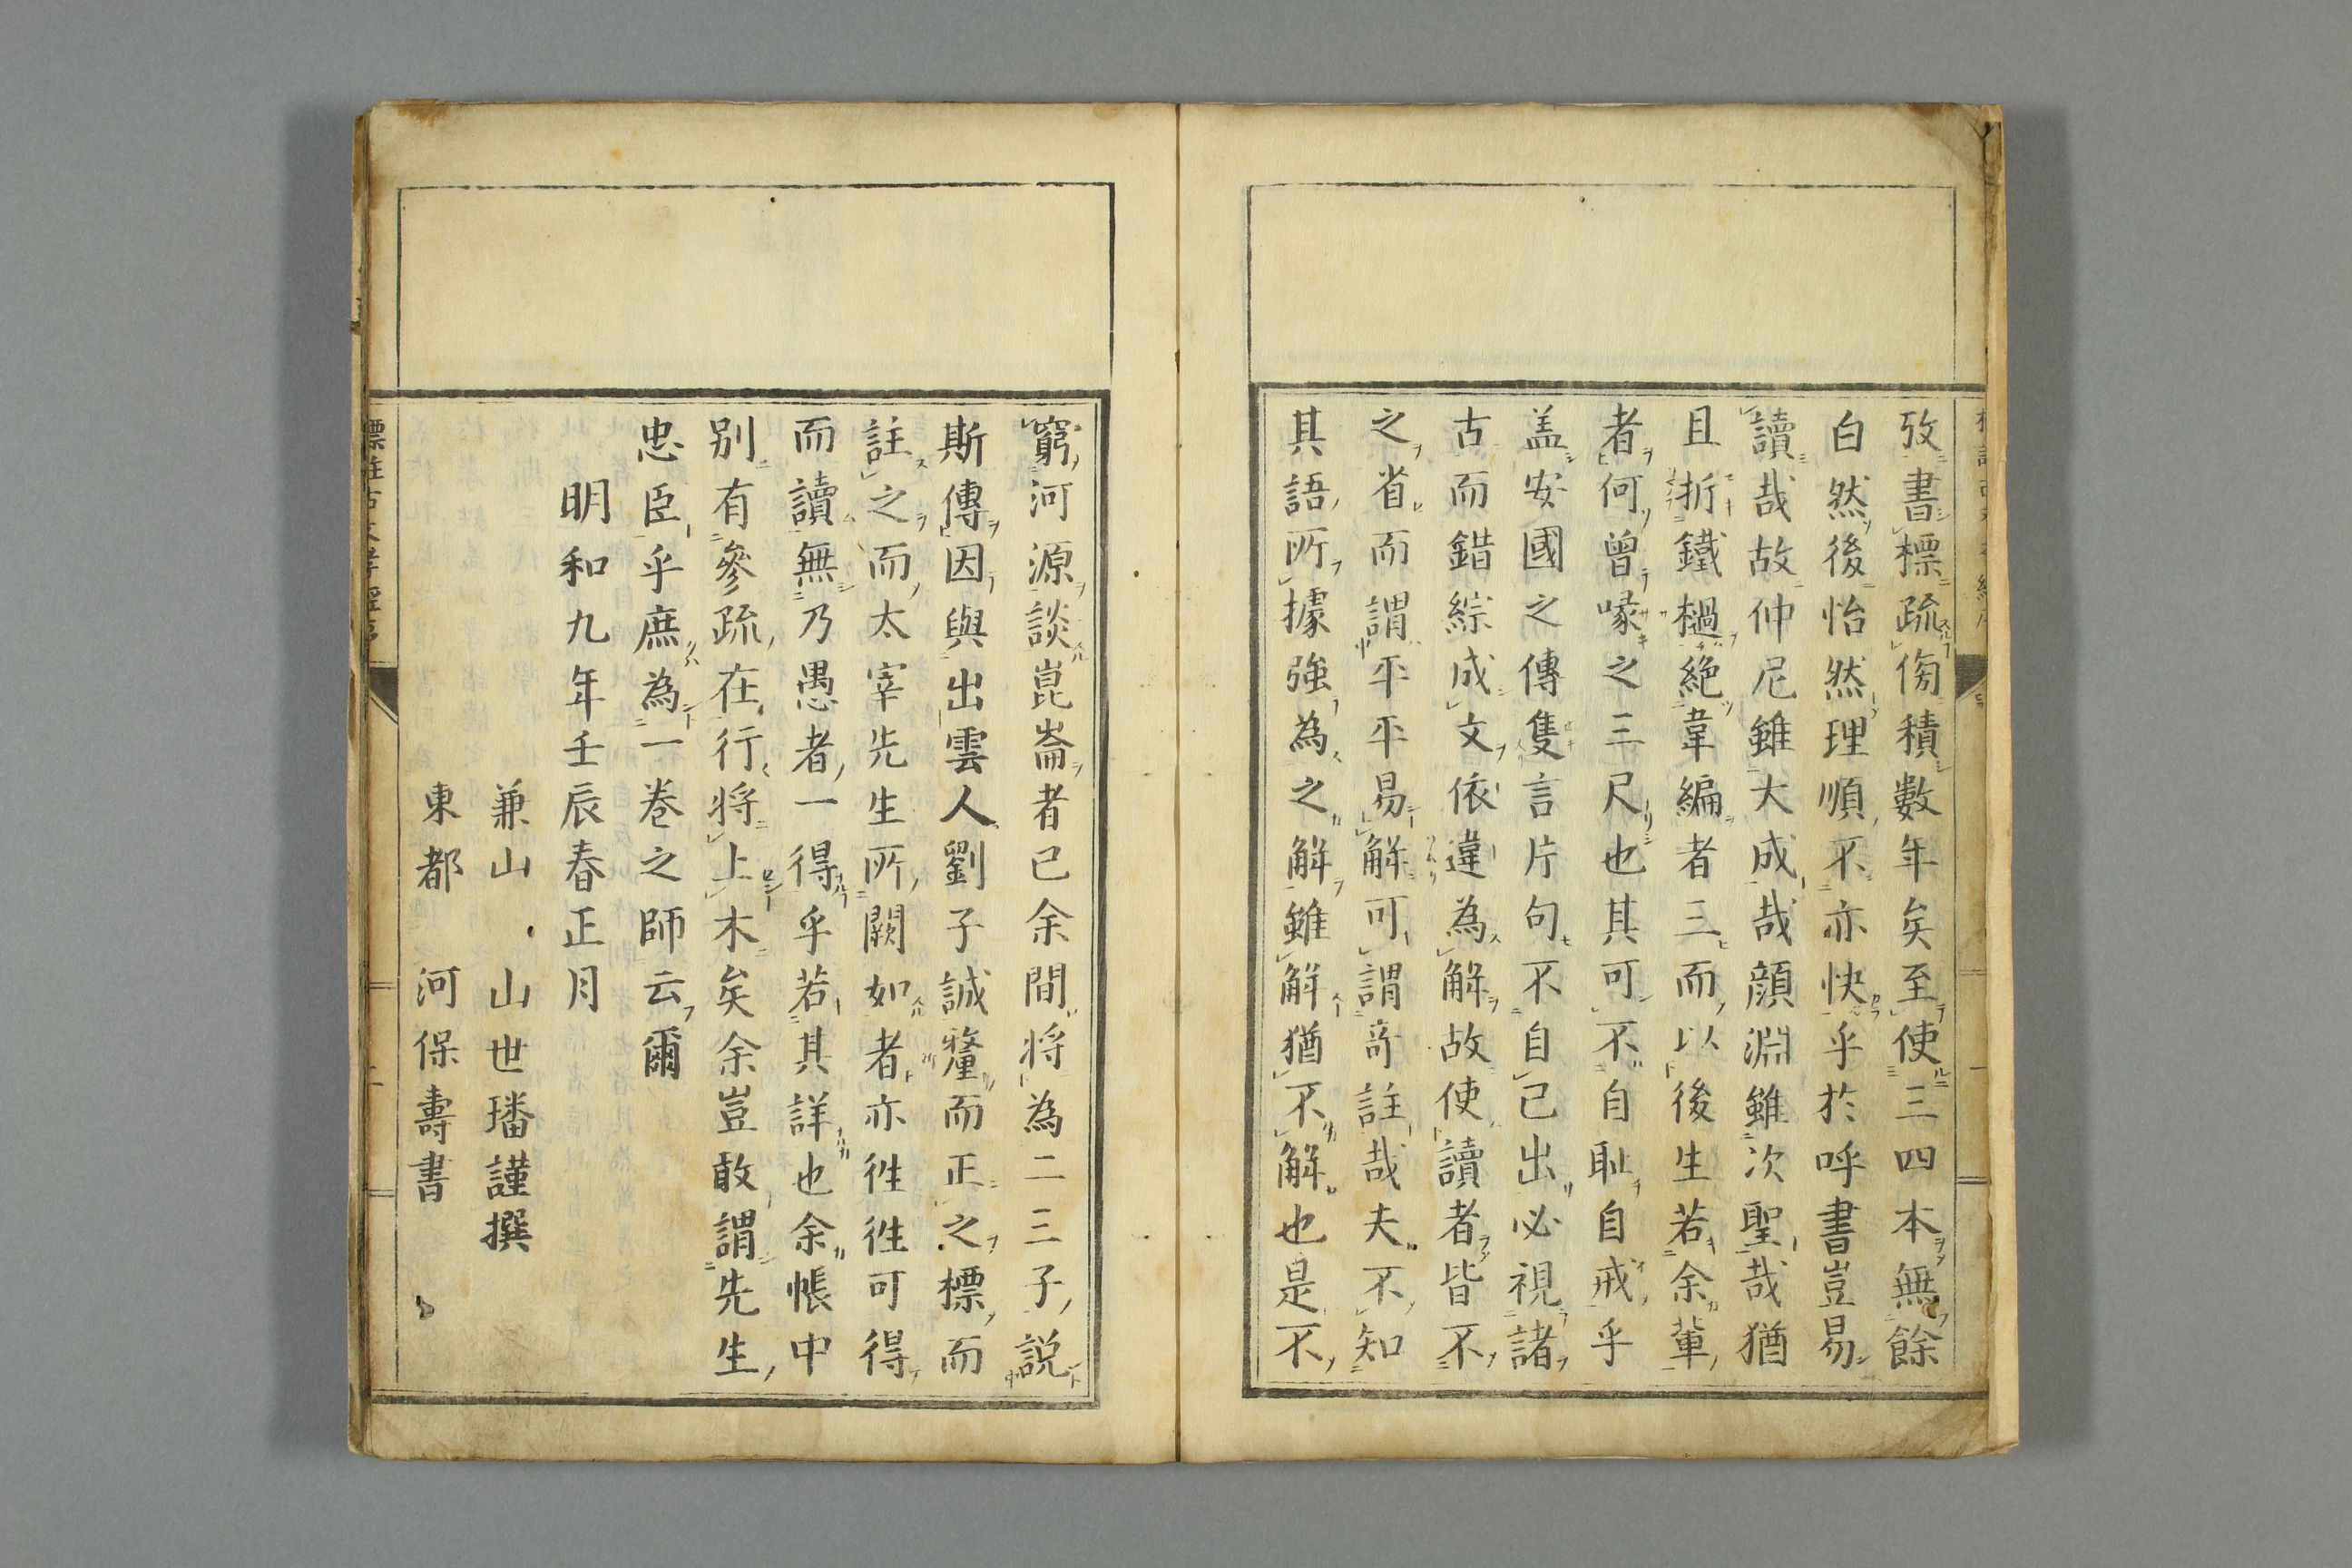 攷書標疏傍積數年矣至使三四本無餘
白然後怡然理順不亦快乎於呼書豈易
讀哉故仲尼雖大成哉顔淵雖次聖哉猶
且折鐵檛絶韋編者三而以後生若余輩
者何曾喙之三尺也其可不自耻自戒乎
盖安國之傳隻言片句不自己出必視諸
古而錯綜成文依違為解故使讀者皆不
之省而謂平平易解可謂竒註哉夫不知
其語所據強為之解雖解猶不解也是不
窮河源談崑崙者已余間將為二三子説
斯傳因與出雲人劉子誠釐而正之標而
註之而太宰先生所闕如者亦徃徃可得
而讀無乃愚者一得乎若其詳也余帳中
別有參疏在行将上木矣余豈敢謂先生
忠臣乎庶為一卷之師云爾
明和九年壬辰春正月
兼山 山世璠謹撰
東都 河保壽書
標註古文孝經序